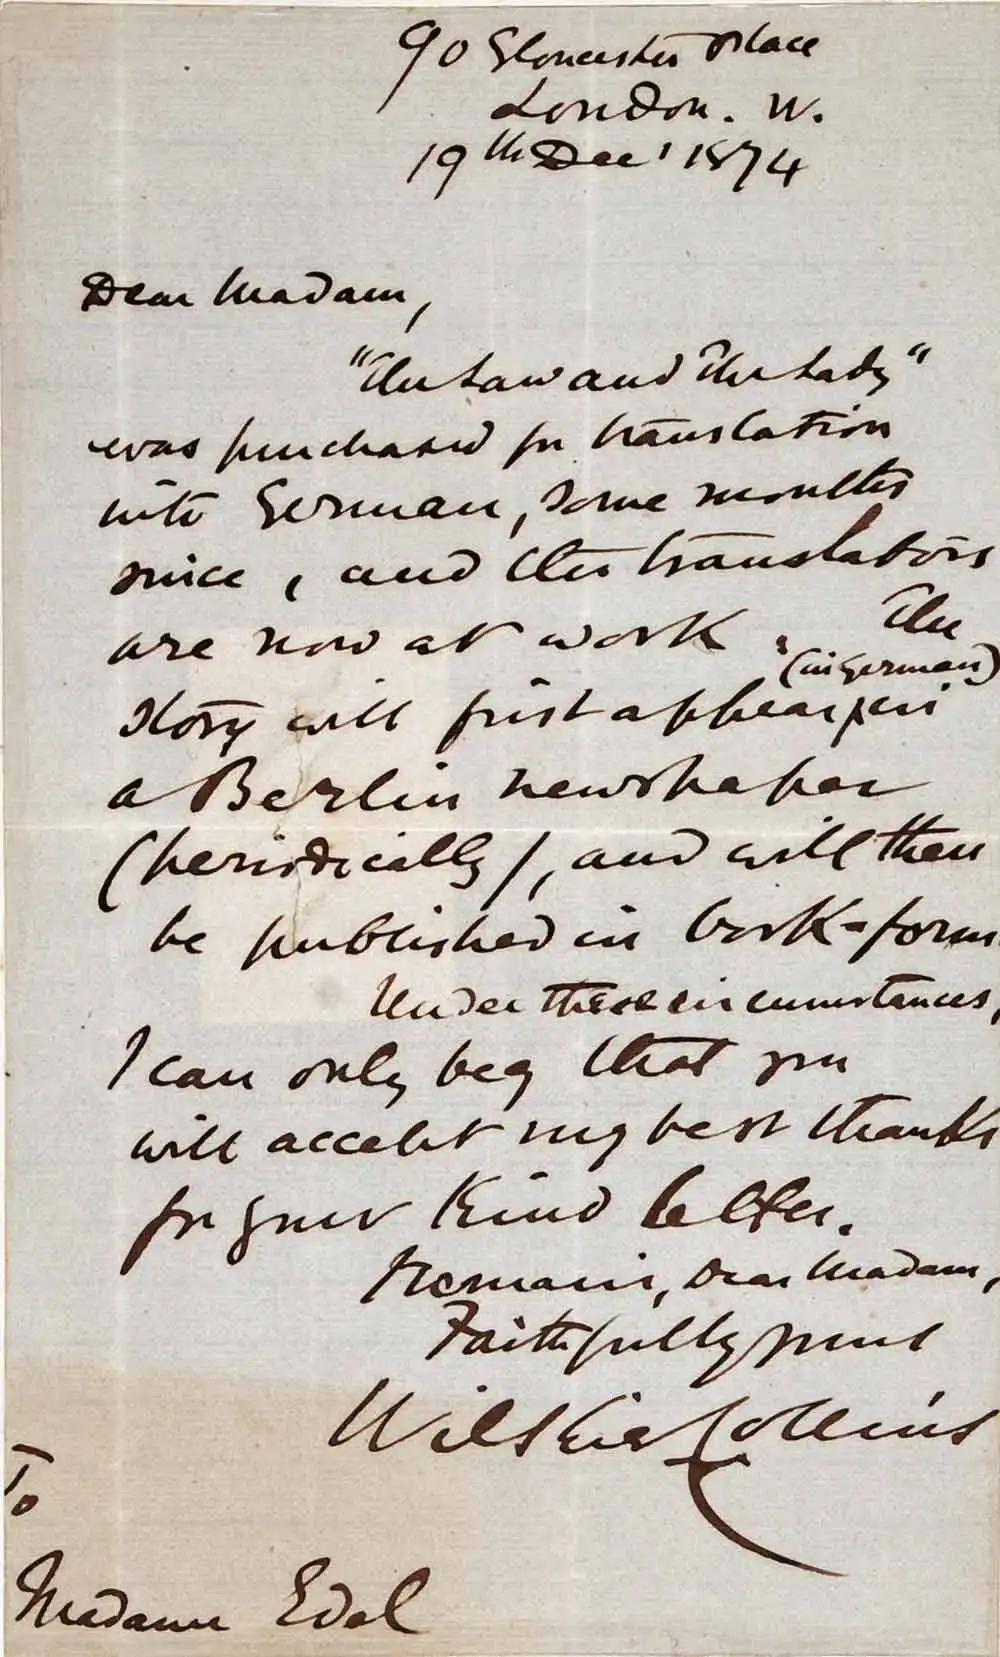 90 Gloucester Place
London. W.
19th Dec' 1874
Dear Madam,
"The Law and The Lady"
was purchased for translation
into German, some months
since, and the translators
are now at work. The
(in German)
story will first appear in
a Berlin newspaper
(periodically), and will then
be published in book-form.
Under these circumstances,
I can only beg that you
will accept my best thanks
for your kind letter.
Remain, Dear Madam,
Faithfully yours
Wilkie Collins
To
Madame Edel